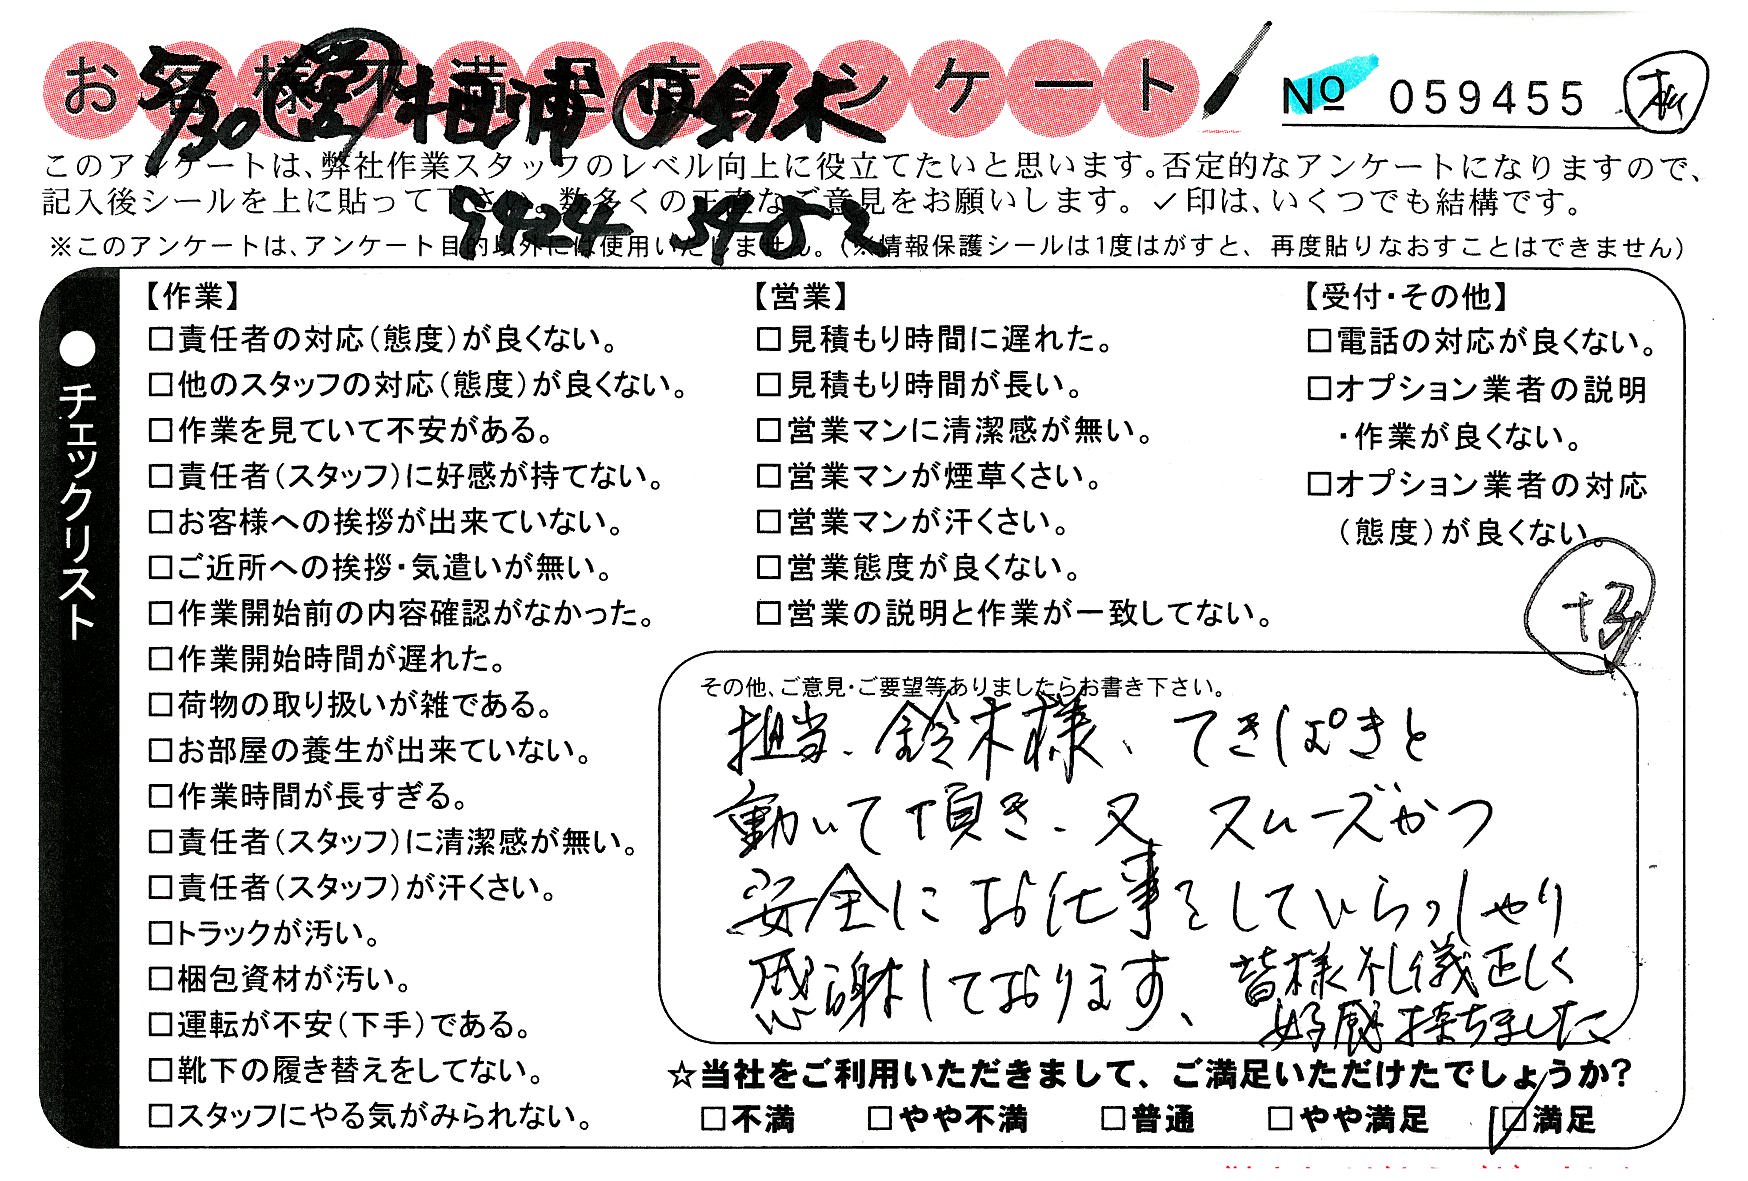 お客様不満足度アンケート
5/30 愛 植浦 鈴木
№ 059455
このアンケートは、弊社作業スタッフのレベル向上に役立てたいと思います。否定的なアンケートになりますので、
記入後シールを上に貼って下さい。数多くの正直なご意見をお願いします。✓印は、いくつでも結構です。
※このアンケートは、アンケート目的以外には使用いたしません。(※情報保護シールは1度はがすと、再度貼りなおすことはできません)
●チェックリスト
【作業】
□責任者の対応(態度)が良くない。
□他のスタッフの対応(態度)が良くない。
□作業を見ていて不安がある。
□責任者(スタッフ)に好感が持てない。
□お客様への挨拶が出来ていない。
□ご近所への挨拶・気遣いが無い。
□作業開始前の内容確認がなかった。
□作業開始時間が遅れた。
□荷物の取り扱いが雑である。
□お部屋の養生が出来ていない。
□作業時間が長すぎる。
□責任者(スタッフ)に清潔感が無い。
□責任者(スタッフ)が汗くさい。
□トラックが汚い。
□梱包資材が汚い。
□運転が不安(下手)である。
□靴下の履き替えをしてない。
□スタッフにやる気がみられない。
【営業】
□見積もり時間に遅れた。
□見積もり時間が長い。
□営業マンに清潔感が無い。
□営業マンが煙草くさい。
□営業マンが汗くさい。
□営業態度が良くない。
□営業の説明と作業が一致してない。
【受付・その他】
□電話の対応が良くない。
□オプション業者の説明
・作業が良くない。
□オプション業者の対応
(態度)が良くない。
その他、ご意見・ご要望等ありましたらお書き下さい。
担当、鈴木様、てきぱきと
動いて頂き、又 スムーズかつ
安全にお仕事をしていらっしゃり
感謝しております、皆様礼儀正しく
好感持ちました
☆当社をご利用いただきまして、ご満足いただけたでしょうか?
□不満 □やや不満 □普通 □やや満足 ☑満足